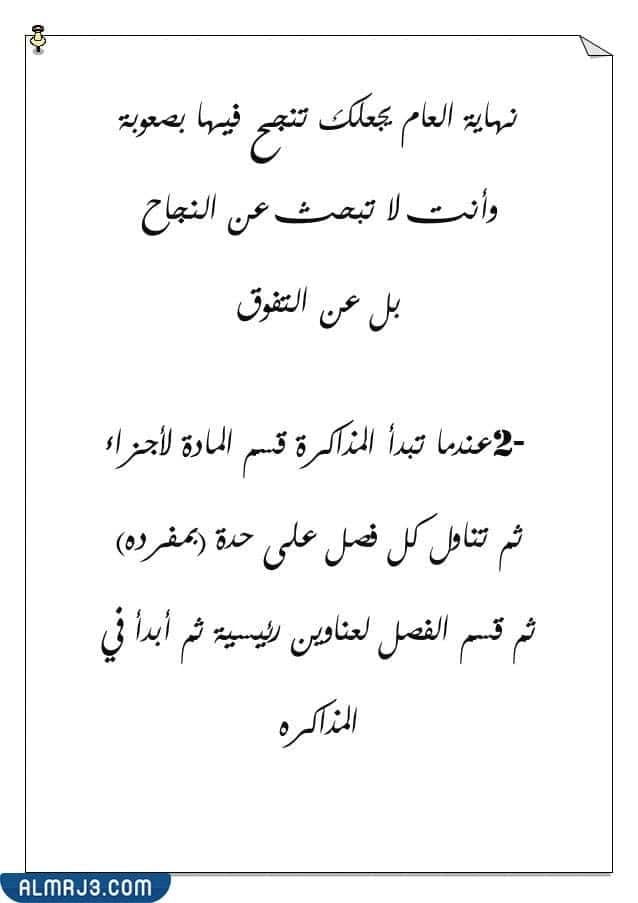 نهاية العام يجعلك تنجح فيها بصعوبة
وأنت لا تبحث عن النجاح
بل عن التفوق
2-عندما تبدأ المذاكرة قسم المادة لأجزاء
ثم تناول كل فصل على حدة (بمفرده)
ثم قسم الفصل لعناوين رئيسية ثم أبدأ في
المذاكره
ALMRJ3.COM